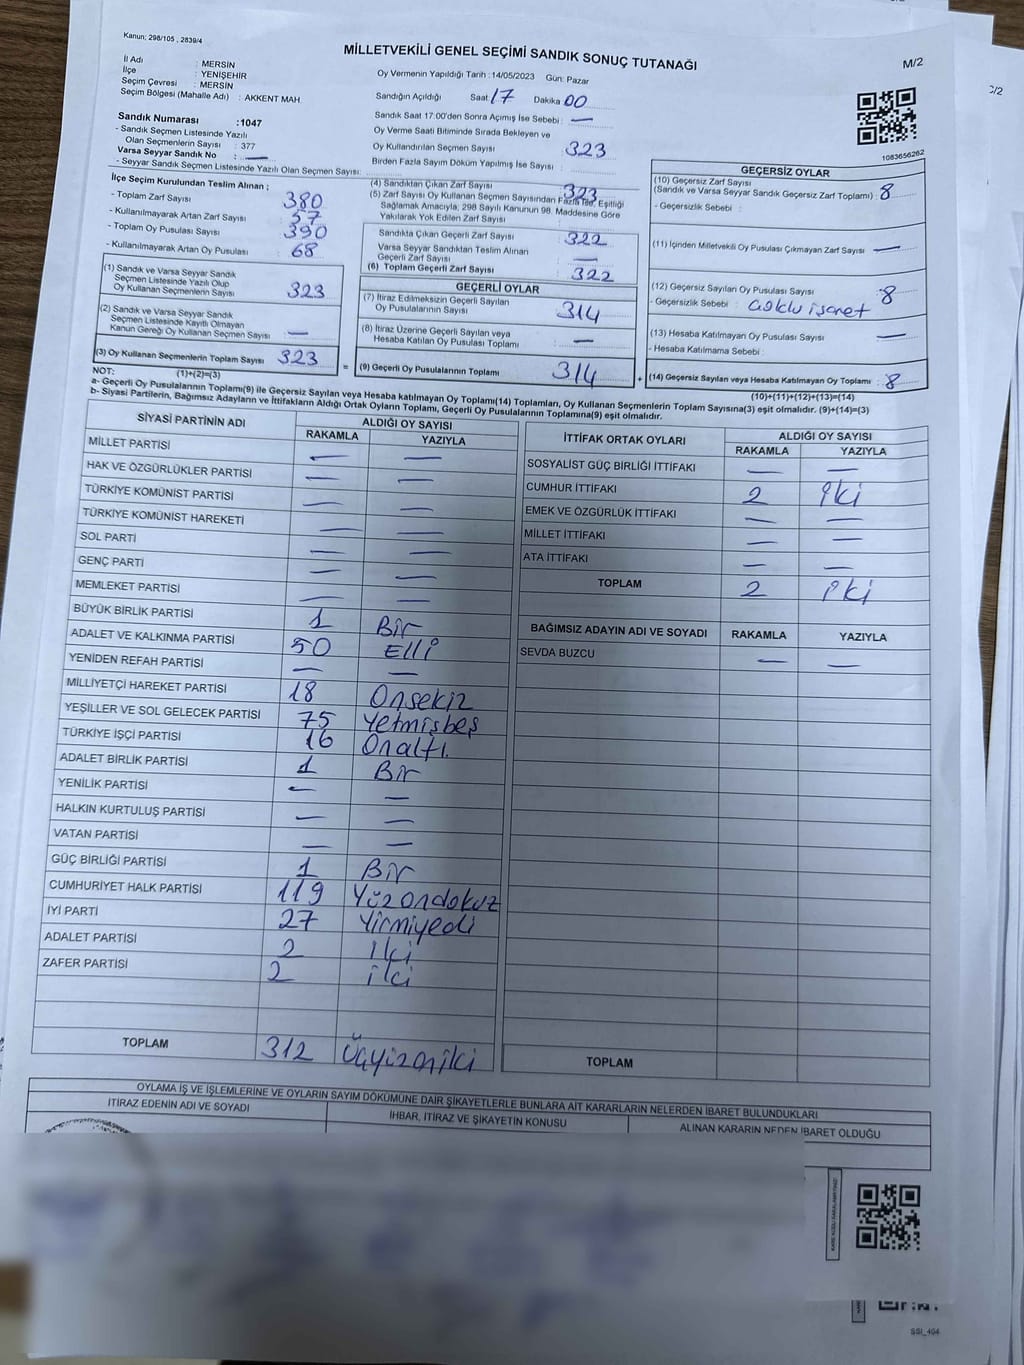 Kanun: 298/105 , 2839/4
MİLLETVEKİLİ GENEL SEÇİMİ SANDIK SONUÇ TUTANAĞI
M/2
İl Adı : MERSİN
İlçe : YENİŞEHİR
Seçim Çevresi : MERSİN
Seçim Bölgesi (Mahalle Adı) : AKKENT MAH
Sandık Numarası : 1047
- Sandık Seçmen Listesinde Yazılı
Olan Seçmenlerin Sayısı : 377
Varsa Seyyar Sandık No : —
- Seyyar Sandık Seçmen Listesinde Yazılı Olan Seçmen Sayısı:
Oy Vermenin Yapıldığı Tarih :14/05/2023 Gün: Pazar
Sandığın Açıldığı Saat 17 Dakika 00
Sandık Saat 17:00'den Sonra Açılmış İse Sebebi : —
Oy Verme Saati Bitiminde Sırada Bekleyen ve
Oy Kullandırılan Seçmen Sayısı : 323
Birden Fazla Sayım Döküm Yapılmış İse Sayısı :
1083656262
İlçe Seçim Kurulundan Teslim Alınan ;
- Toplam Zarf Sayısı : 380
- Kullanılmayarak Artan Zarf Sayısı : 57
- Toplam Oy Pusulası Sayısı : 390
- Kullanılmayarak Artan Oy Pusulası : 68
(1) Sandık ve Varsa Seyyar Sandık
Seçmen Listesinde Yazılı Olup
Oy Kullanan Seçmenlerin Sayısı : 323
(2) Sandık ve Varsa Seyyar Sandık
Seçmen Listesinde Kayıtlı Olmayan
Kanun Gereği Oy Kullanan Seçmen Sayısı : —
(3) Oy Kullanan Seçmenlerin Toplam Sayısı : 323
(4) Sandıktan Çıkan Zarf Sayısı : 323
(5) Zarf Sayısı Oy Kullanan Seçmen Sayısından Fazla İse, Eşitliği
Sağlamak Amacıyla; 298 Sayılı Kanunun 98. Maddesine Göre
Yakılarak Yok Edilen Zarf Sayısı :
Sandıkta Çıkan Geçerli Zarf Sayısı : 322
Varsa Seyyar Sandıktan Teslim Alınan
Geçerli Zarf Sayısı : —
(6) Toplam Geçerli Zarf Sayısı : 322
GEÇERLİ OYLAR
(7) İtiraz Edilmeksizin Geçerli Sayılan
Oy Pusulalarının Sayısı : 314
(8) İtiraz Üzerine Geçerli Sayılan veya
Hesaba Katılan Oy Pusulası Toplamı : —
= (9) Geçerli Oy Pusulalarının Toplamı : 314
GEÇERSİZ OYLAR
(10) Geçersiz Zarf Sayısı
(Sandık ve Varsa Seyyar Sandık Geçersiz Zarf Toplamı) : 8
- Geçersizlik Sebebi :
(11) İçinden Milletvekili Oy Pusulası Çıkmayan Zarf Sayısı : —
(12) Geçersiz Sayılan Oy Pusulası Sayısı : 8
- Geçersizlik Sebebi : Çoklu işaret
(13) Hesaba Katılmayan Oy Pusulası Sayısı : —
- Hesaba Katılmama Sebebi :
+ (14) Geçersiz Sayılan veya Hesaba Katılmayan Oy Toplamı : 8
NOT: (1)+(2)=(3)
(10)+(11)+(12)+(13)=(14)
a- Geçerli Oy Pusulalarının Toplamı(9) ile Geçersiz Sayılan veya Hesaba katılmayan Oy Toplamı(14) Toplamları, Oy Kullanan Seçmenlerin Toplam Sayısına(3) eşit olmalıdır. (9)+(14)=(3)
b- Siyasi Partilerin, Bağımsız Adayların ve İttifakların Aldığı Ortak Oyların Toplamı, Geçerli Oy Pusulalarının Toplamına(9) eşit olmalıdır.
SİYASİ PARTİNİN ADI ALDIĞI OY SAYISI
RAKAMLA YAZIYLA
MİLLET PARTİSİ — —
HAK VE ÖZGÜRLÜKLER PARTİSİ — —
TÜRKİYE KOMÜNİST PARTİSİ — —
TÜRKİYE KOMÜNİST HAREKETİ — —
SOL PARTİ — —
GENÇ PARTİ — —
MEMLEKET PARTİSİ — —
BÜYÜK BİRLİK PARTİSİ 1 Bir
ADALET VE KALKINMA PARTİSİ 50 Elli
YENİDEN REFAH PARTİSİ — —
MİLLİYETÇİ HAREKET PARTİSİ 18 Onsekiz
YEŞİLLER VE SOL GELECEK PARTİSİ 75 Yetmişbeş
TÜRKİYE İŞÇİ PARTİSİ 16 Onaltı
ADALET BİRLİK PARTİSİ 1 Bir
YENİLİK PARTİSİ — —
HALKIN KURTULUŞ PARTİSİ — —
VATAN PARTİSİ — —
GÜÇ BİRLİĞİ PARTİSİ 1 Bir
CUMHURİYET HALK PARTİSİ 119 Yüzondokuz
İYİ PARTİ 27 Yirmiyedi
ADALET PARTİSİ 2 İki
ZAFER PARTİSİ 2 iki
TOPLAM 312 Üçyüzoniki
İTTİFAK ORTAK OYLARI ALDIĞI OY SAYISI
RAKAMLA YAZIYLA
SOSYALİST GÜÇ BİRLİĞİ İTTİFAKI — —
CUMHUR İTTİFAKI 2 iki
EMEK VE ÖZGÜRLÜK İTTİFAKI — —
MİLLET İTTİFAKI — —
ATA İTTİFAKI — —
TOPLAM 2 iki
BAĞIMSIZ ADAYIN ADI VE SOYADI RAKAMLA YAZIYLA
SEVDA BUZCU — —
TOPLAM
OYLAMA İŞ VE İŞLEMLERİNE VE OYLARIN SAYIM DÖKÜMÜNE DAİR ŞİKAYETLERLE BUNLARA AİT KARARLARIN NELERDEN İBARET BULUNDUKLARI
İTİRAZ EDENİN ADI VE SOYADI
İHBAR, İTİRAZ VE ŞİKAYETİN KONUSU
ALINAN KARARIN NEDEN İBARET OLDUĞU
SSI_494